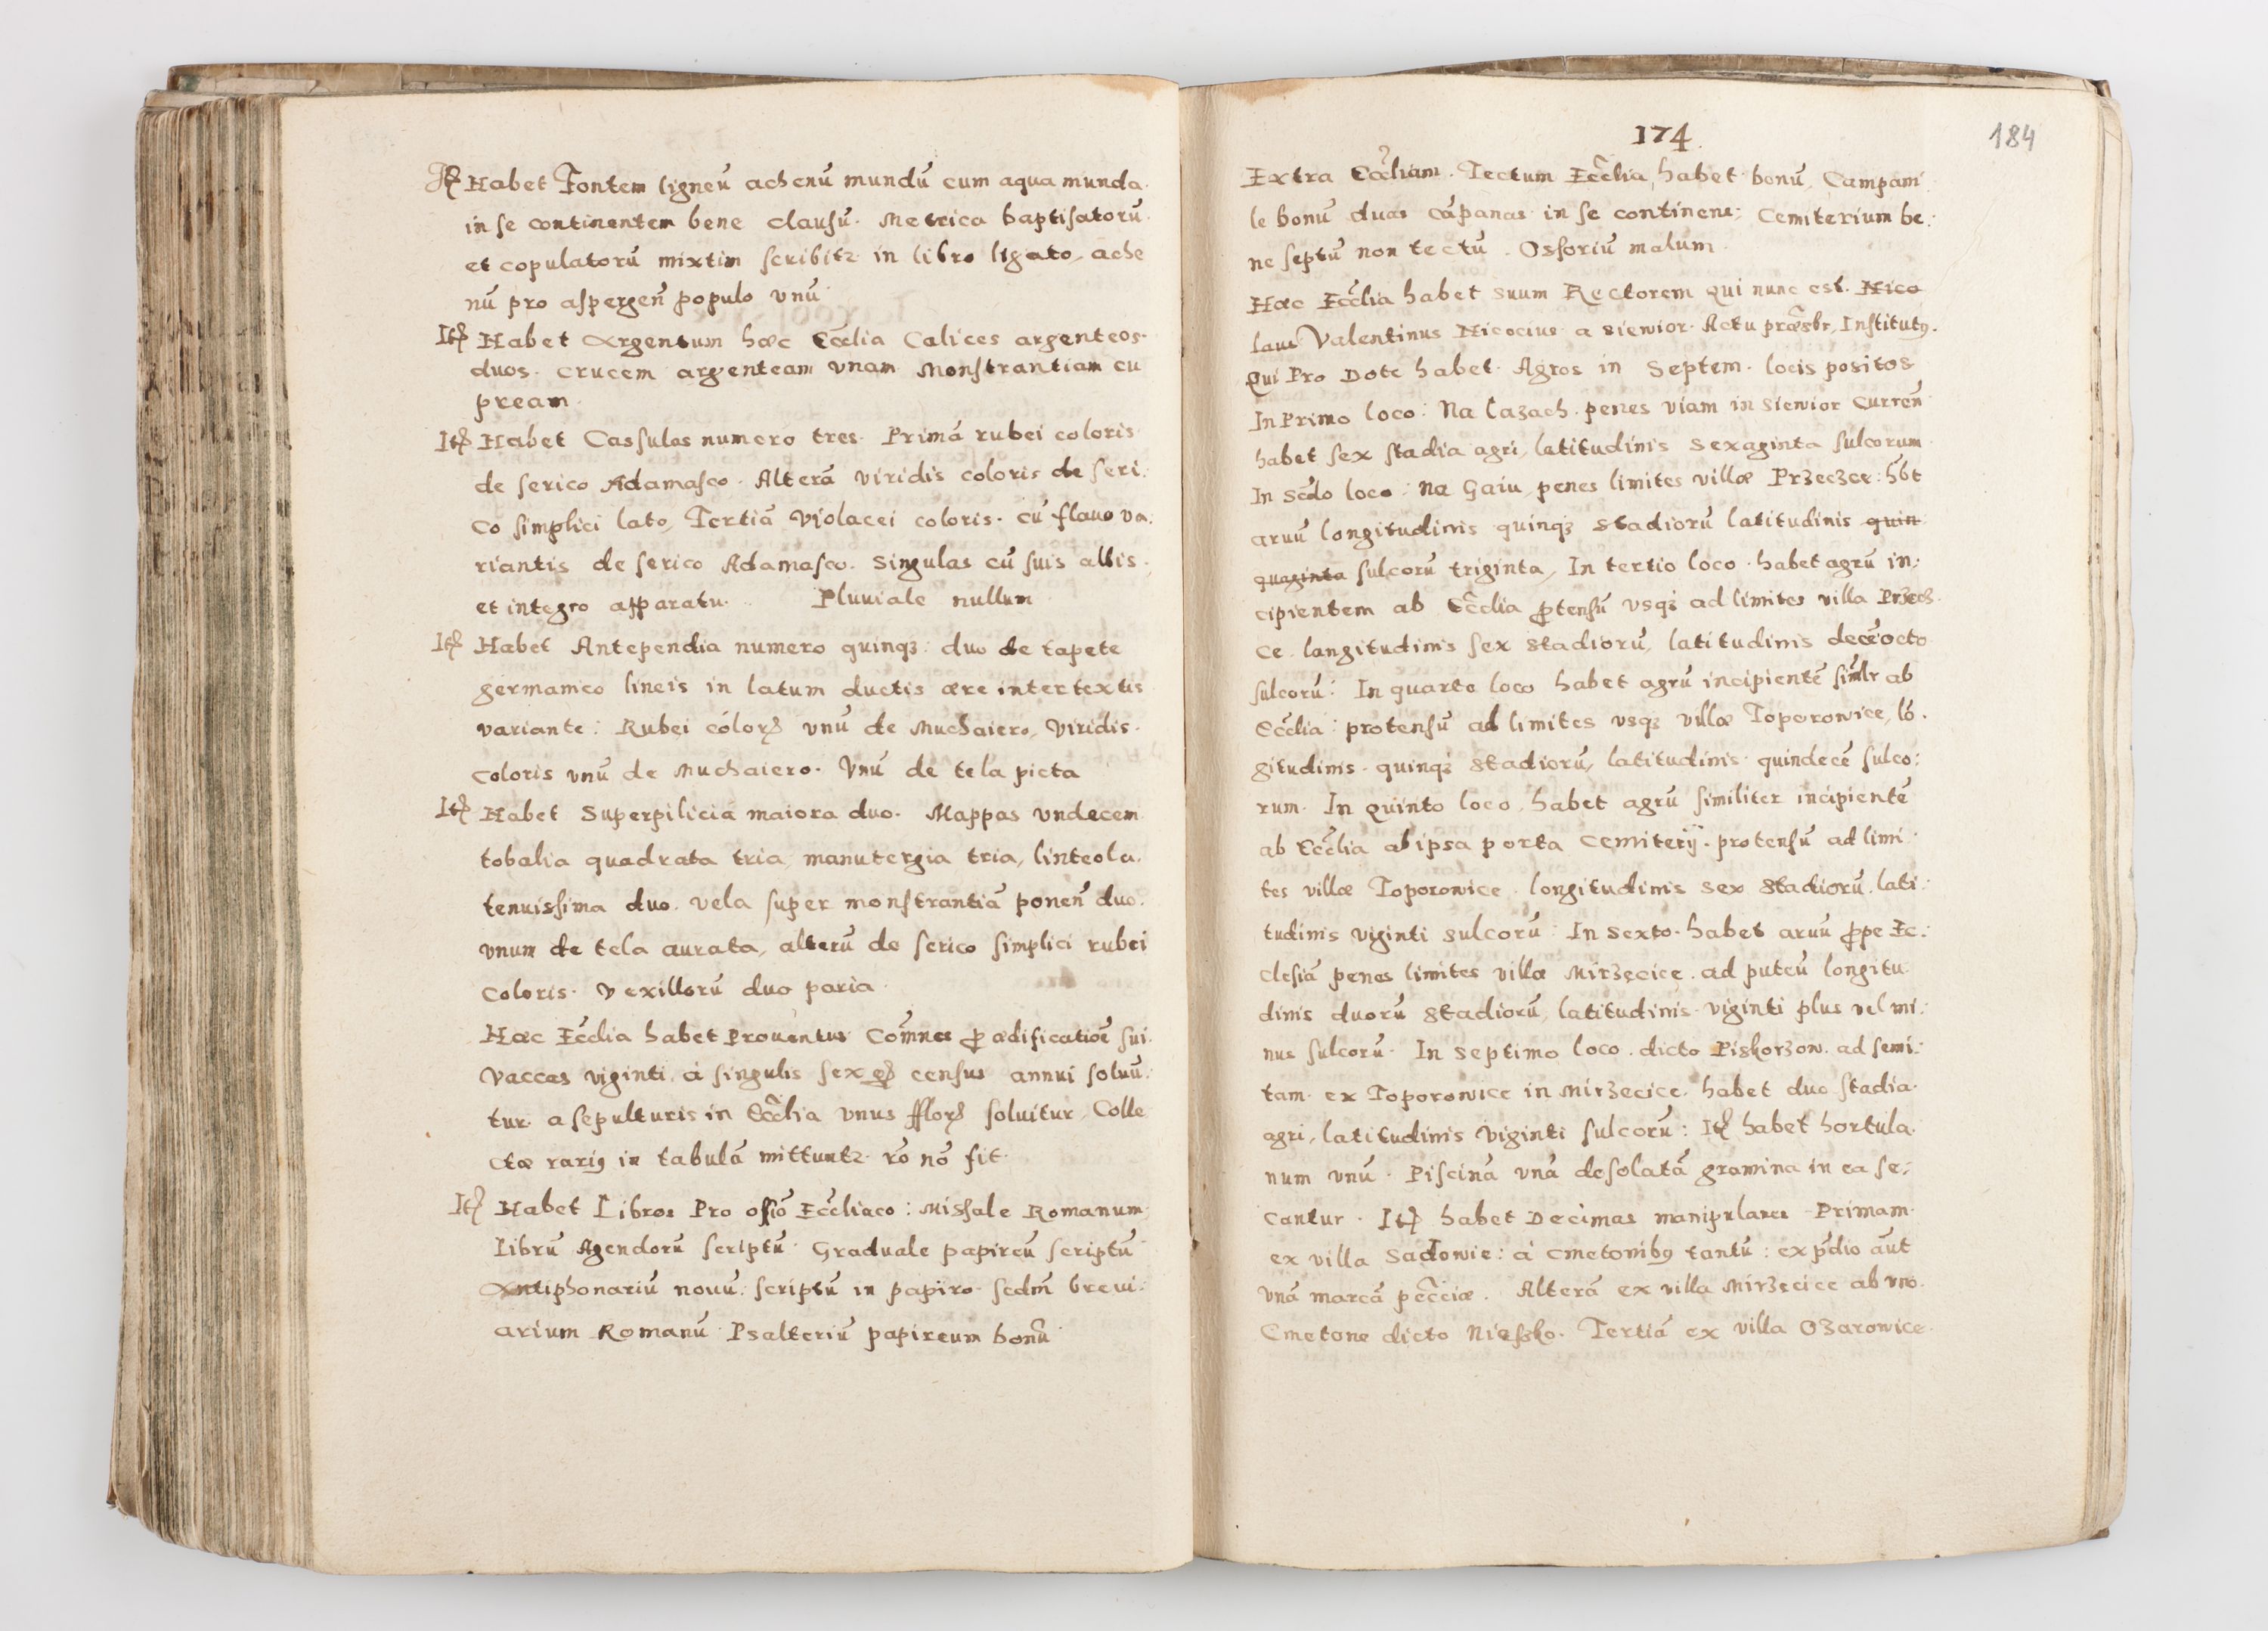 Itē Habet Fontem ligneū achenū mundū cum aqua munda.
in se continentem bene clausū. Metrica baptisatorū
et copulatorū mixtim scribitr in libro ligato, ache
nū pro aspergen̄ populo vnū
Itē Habet Argentum hæc Eccłia Calices argenteos.
duos. crucem argenteam vnam Monstrantiam cu
pream.
Itē Habet Cassulas numero tres. Primā rubei coloris
de serico Adamasco. Alterā viridis coloris de seri:
co simplici lato, Tertiā violacei coloris. cū flauo va:
riantis de serico Adamasco. Singulas cū suis albis.
et integro apparatu. Pluuiale nullum
Itē Habet Antependia numero quinqȝ: duo de tapete
germanico lineis in latum ductis ære intertextis
variante: Rubei colorꝭ vnū de Muchaiero, viridis.
coloris vnū de Muchaiero. Vnū de tela picta
Itē Habet Superpilicia maiora duo. Mappas vndecem
tobalia quadrata tria, manutergia tria, linteola.
tenuissima duo. vela super monstrantiā ponen̄ duo.
vnum de tela aurata, alterū de serico simplici rubei
coloris. vexillorū duo paria.
Hæc Eccłia habet Prouentus Com̄nes ꝓ ædificatiōe sui.
Vaccas viginti, à singulis sex gꝭ census annui soluū:
tur. a sepulturis in Eccłia vnus fflorꝭ soluitur, Colle
ctæ rariꝰ in tabulā mittuntr. rō nō fit.
Itē Habet Libros Pro offiō Eccłiaco: Missale Romanum
librū Agendorū scriptū. Graduale papireū scriptū
Antiphonariū nouū. scriptū in papiro. sedm̄ breui:
arium Romanū. Psalteriū papireum bonū
174
184
Extra Eccłiam. Tectum Eccłia habet bonū, Campani
le bonū duas cāpanas in se continens; Cemiterium be:
ne septū non tectū. Ossoriū malum.
Hæc Eccłia habet suum Rectorem qui nunc est. Nico
laus Valentinus Nicocius a Siewior. Actu præsbr, Institutꝰ.
Qui Pro Dote habet. Agros in Septem. locis positos
In Primo loco: Na Lazach. penes viam in Siewior Curren̄
habet sex stadia agri, latitudinis sexaginta sulcorum
In Scd̄o loco: Na Gaiu, penes limites villæ Przeczce: hb̄t
aruū longitudinis quinqȝ stadiorū latitudinis quin
quaginta sulcorū triginta, In tertio loco. habet agrū in:
cipientem ab Eccłia ꝓtensū vsqȝ ad limites villa Przecz
ce. longitudinis sex stadiorū, latitudinis decēocto
sulcorū: In quarto loco habet agrū incipientē similr ab
Eccłia: protensū ad limites vsqȝ villæ Toporowice, lō.
gitudinis. quinqȝ stadiorū, latitudinis quindecē sulco:
rum. In quinto loco. habet agrū similiter incipientē
ab Eccłia ab ipsa porta cemiterÿ. protensū ad limi
tes villæ Toporowice. longitudinis sex stadiorū. lati:
tudinis viginti sulcorū: In sexto. habet aruū ꝓpe Ec:
clesiā penes limites villæ Mirzecice. ad puteū longitu
dinis duorū stadiorū, latitudinis. viginti plus vel mi:
nus sulcorū. In septimo loco. dicto Piskorzow. ad semi:
tam. ex Toporowice in Mirzecice. habet duo stadia.
agri, latitudinis viginti sulcorū: Itē habet hortula.
num vnū. Piscinā vnā desolatā gramina in ea se:
cantur. Itē habet Decimas manipulares Primam.
ex villa Sadowie: à cmetonibꝰ tantū: ex p̄dio aūt
vnā marcā pecc̄iæ. Alterā ex villa Mirzecice ab vno.
Cmetone dicto Nieszko. Tertiā ex villa Ozarowice.